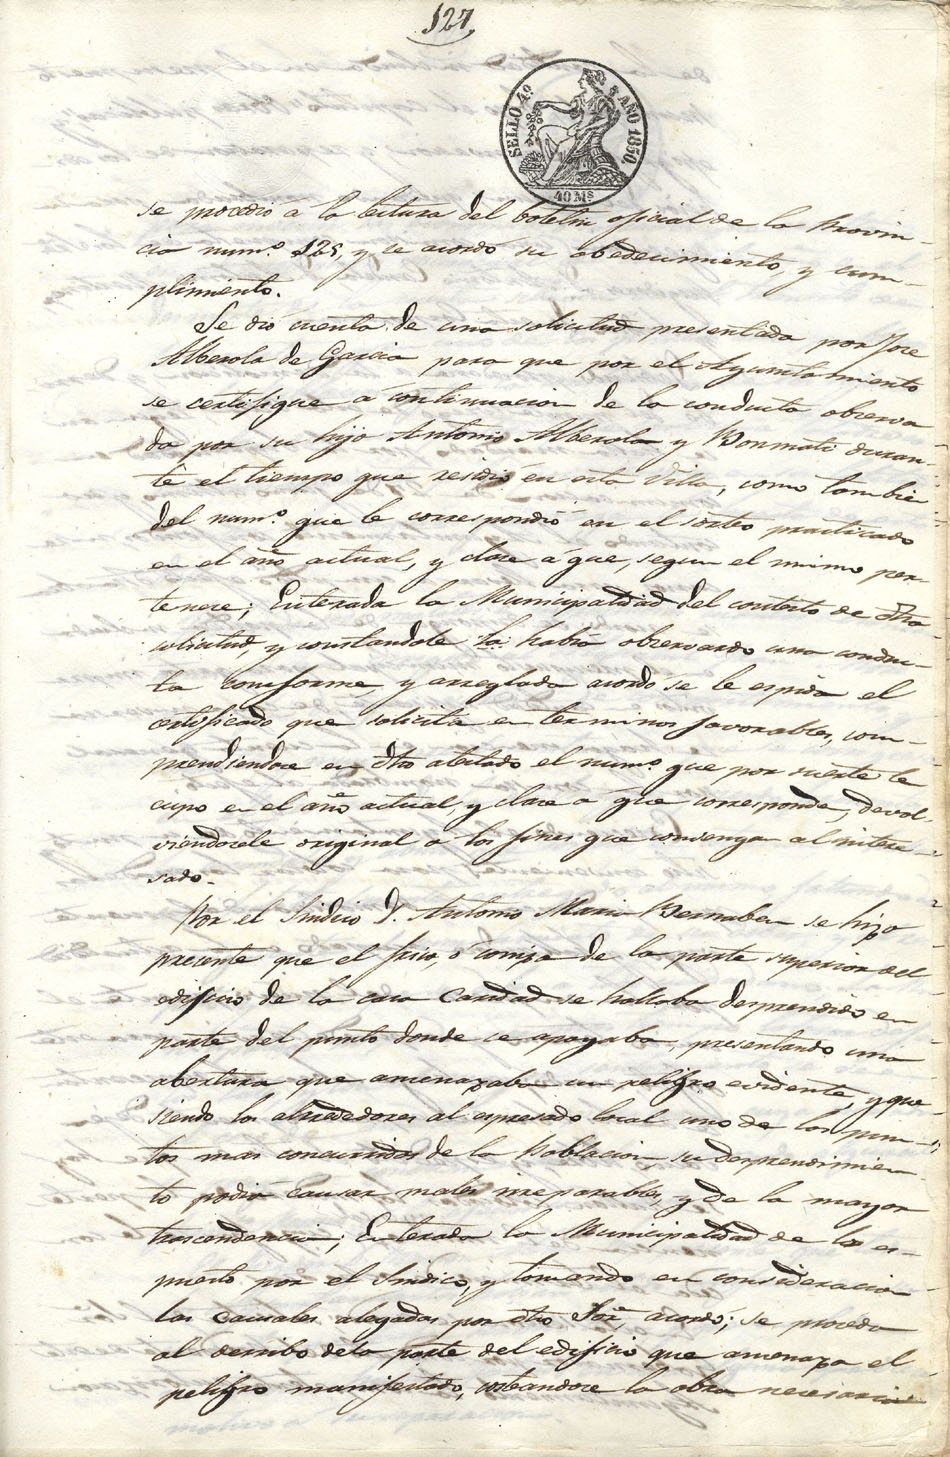 127
SELLO 4º AÑO 1850
40 Ms
se procedió á la lectura del boletin oficial de la Provin-
cia num.º 125, y se acordó su obedecimiento, y cum-
plimiento.
Se dió cuenta de una solicitud presentada por Jose
Alberola de Garcia para que por el Ayuntamiento
se certifique á continuacion de la conducta observa
da por su hijo Antonio Alberola y Bonmati duran-
te el tiempo que residió en esta Villa, como tambien
del num.º que le correspondió en el sorteo practicado
en el año actual, y clase á que, segun el mismo per-
tenece; Enterada la Municipalidad del contesto de dha
solicitud, y constandole ha habia observado una conduc-
ta conforme, y arreglada acordó se le espida el
certificado que solicita en terminos favorables, com-
prendiendose en dho atestado el num.º que por suerte le
cupo en el año actual, y clase a que corresponde, devol-
viendosele original a los fines que convenga al intere-
sado.
Por el Sindico D. Antonio Maria Bernabeu se hizo
presente que el friso, ó corniza de la parte superior del
edificio de la casa Caridad se hallaba desprendido en
parte del punto donde se apoyaba, presentando una
abertura que amenazaba un peligro evidente, y que
siendo los alrededores al espresado local uno de los pun-
tos mas concurridos de la Poblacion, su desprendimien
to podia causar males irreparables, y de la mayor
trascendencia; Enterada la Municipalidad de lo es-
puesto por el Sindico, y tomando en consideracion
las causales alegadas por dho Sor, acordó; se proceda
al derribo de la parte del edificio que amenaza el
peligro manifestado, costeandose la obra necesaria